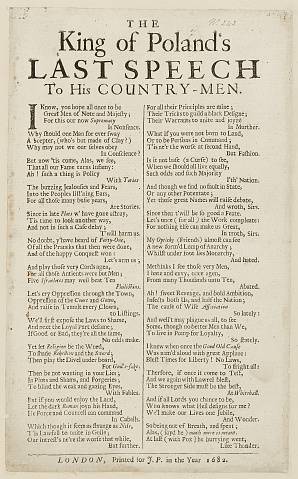 THE
King of Poland's
LAST SPEECH
To His COUNTRY-MEN.
I Know, you hope all once to be
Great Men of Note and Majesty;
For this our now Supremacy
Is Nonsence.
Why should one Man for ever sway
A Scepter, (who's but made of Clay?)
Why may not we our selves obey
In Conscience?
But now 'tis come, Alas, we see,
That all our Fame turns infamy:
Ah! such a thing is Policy
With
The buzzing Jealousies and Fears,
Into the Peoples list'ning Ears,
For all those many busie years,
Are Stories.
Since in late
'Tis time to look another way,
And not in such a Case delay;
'Twill harm us.
No doubt, y'have heard of Forty-One,
Of all the Pranks that then were done,
And of the happy Conquest won:
Let's arm us;
And play those very Cards again,
For all those Antients were but Men;
Five may well beat Ten
Let's cry Oppression through the Town,
Oppression of the Crown and Gown,
And raise in Tumult every Clown,
to Liftings.
We'll first expose the Laws to Shame,
And next the Loyal Part defame;
If Good or Bad, they're all the same,
No odds make.
Yet let Religion be the Word,
To shade Rebellion and the Sword;
Then play the Devil under board,
For God's-sake.
Then be not wanting in your Lies;
In Pleas and Shams, and Forgeries,
To blind the weak and gazing Eyes,
With Fables.
But if you would enjoy the Land,
Let the dark Roman join his Hand,
His Force and Counsel can command
In Cabals.
Which though it seems strange as
'Tis Lawful to unite in Guile;
Our intrest's ne're the worse that while,
But further.
For all their Principles are mine;
Their Tricks to guild a black Design;
Their Warrants to unite and joyn
In Murther.
What if you were not born to Land,
Or to be Partizs in Command;
There's the worst at second Hand,
Ben Fashion.
It is not base (a Curse) to see,
When we should all live equally,
Such odds and such Majesty
I'th' Nation.
And though we find no fault in State,
Or any other Potentate;
Yet those great Names will raise debate,
And wroth, Sirs.
Since that will be so good a Feature,
Let's once (for all) the Work compleat:
For nothing else can make us Great,
In troth, Sirs.
My Speedy (Friends) almost cease
A new form'd Lump of Anarchy;
Whilst under foot lies Monarchy,
And hated.
Methinks I see those very Men,
I hate and envy, once agen,
From many Thousands unto Ten,
Abated.
Ah! sweet Revenge, and bold Ambition,
Infests both Us, and half the Nation;
The cause of Wise
So lately:
And well may plague us all, to see
Some, though no better Men than We,
To live in Pomp for Loyalty,
So stately.
I knew when once the Good Old Cause
Was aim'd aloud with great Applause:
Blest Times for Liberty! No Laws,
To fright all:
Therefore, if once it come to Test,
And we again with Lawrel blest,
The Stronger Side must be the best,
At
And if all Lords you chance to be,
Who knows what Hell designs for me?
We'l make our Lives one Jubile,
And Wonder.
So being out of Breath, and spent;
Alas, (says he) much more is meant;
At last (with Pox) he hurrying went,
Like Thunder.
LONDON, Printed for J.P. in the Year 1682.